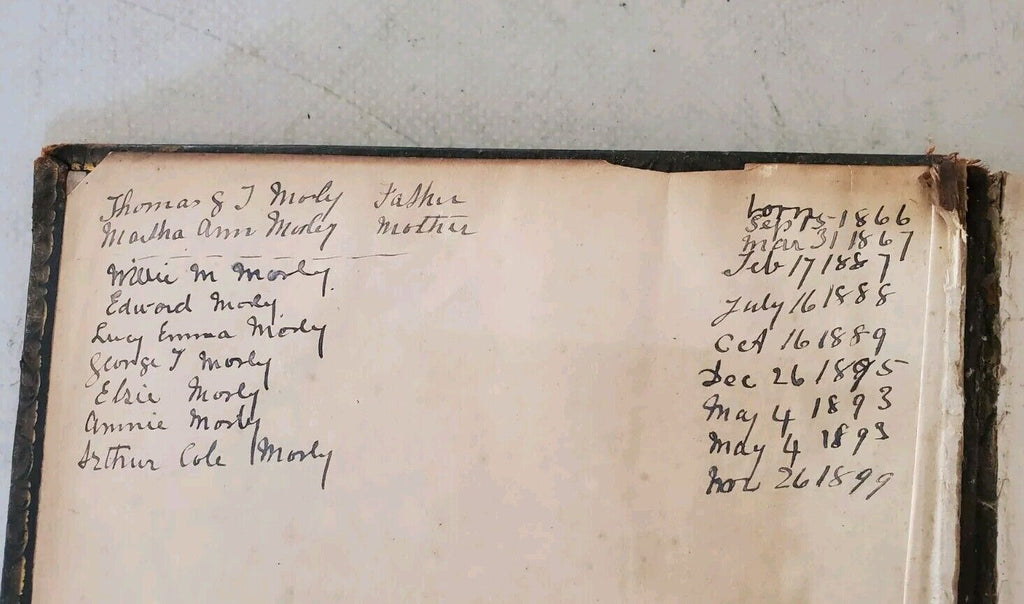 Thomas & T Morly Father born
Sep 15 1866
Martha Ann Morly Mother Mar 31 1867
Willie M Morly Feb 17 1887
Edward Morly July 16 1888
Lucy Emma Morly Oct 16 1889
George T Morly Dec 26 1895
Elsie Morly May 4 1893
Annie Morly May 4 1893
Arthur Cole Morly Nov 26 1899